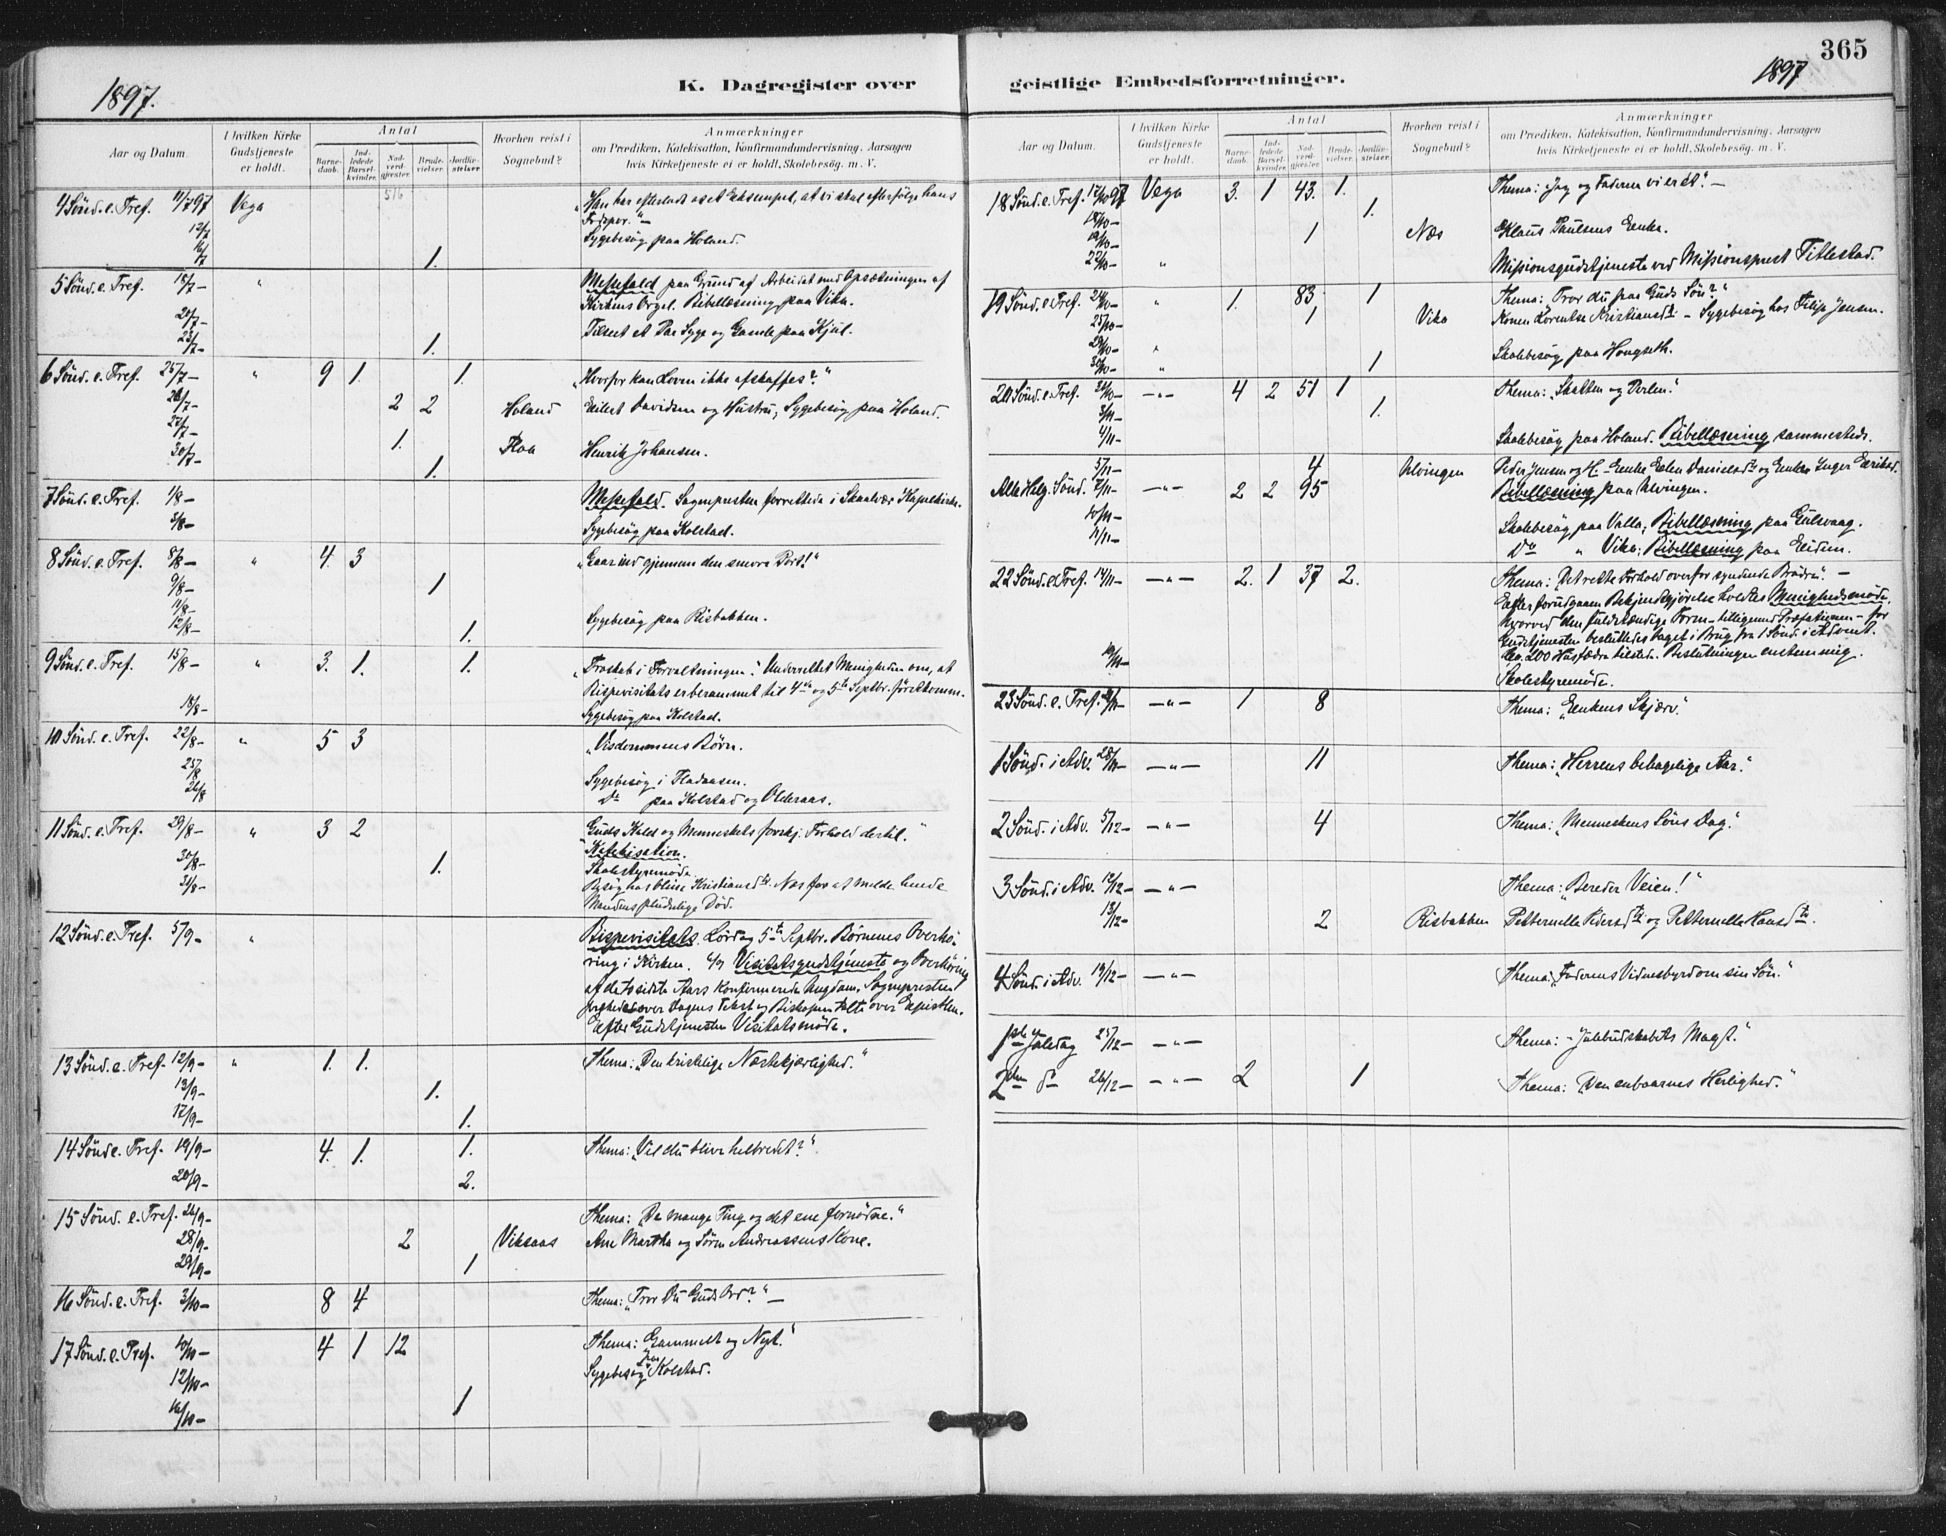 1897.
K. Dagregister over
Aar og Datum.
I hvilken Kirke Gudstjeneste er holdt.
Antal
Barne-daab.
Ind-ledede Barsel-kvinder.
Nad-verd-gjester.
Brude-vielser.
Jordfæ-stelser.
Hvorhen reist i Sognebud?
Anmærkninger
om Prædiken, Katekisation, Konfirmandundervisning, Aarsagen
hvis Kirketjeneste ei er holdt, Skolebesøg. m. V.
4 Sønd. e. Tref. 11/7 97 Vega 516 „Han har efterladt os et Eksempel, at vi skal efterfølge hans
12/7 Fodspor." –
Sygebesøg paa Holand.
16/7 1.
5 Sønd. e. Tref. 18/7– „ Messefald paa Grund af Arbeidet med Opsætningen af
Kirkens Orgel. Bibellæsning paa Vika.
20/7– Tilseet et Par Syge og Gamle paa Kjul.
23/7– 1.
6 Sønd. e. Tref. 25/7– „ 9 1. 1. „Hvorfor kan Loven ikke afskaffes?"
26/7– 2 2 Holand Eilert Davidsen og Hustru, Sygebesøg paa Holand.
27/7– 1. Floa Henrik Johansen.
30/7– 1.
7 Sønd. e. Tref. 1/8– Messefald. Sognepresten forrettede i Skaalvær Kapelkirke.
3/8– Sygebesøg paa Kolstad.
8 Sønd. e. Tref. 8/8– „ 4. 3 „Gaar ind gjennem den snevre Port!"
9/8– 1
11/8– Sygebesøg paa Risbakken.
12/8– 1.
9 Sønd. e. Tref. 15/8– „ 3. 1. 1. „Troskab i Forvaltningen." Underrettet Menigheden om, at
Bispevisitats er berammet til 4de og 5te Septbr. førstkomm.
18/8– Sygebesøg paa Kolstad.
10 Sønd. e. Tref. 22/8– „ 5 3 „Visdommens Børn.
25/8 Sygebesøg i Fladaasen.
26/8 Do paa Kolstad og Olderaas.
11 Sønd. e. Tref. 29/8– „ 3 2 Guds Kald og Menneskets forskj. Forhold dertil."
Katekisation.
30/8– 1. Skolestyremøde
31/8– Besøg hos Kristiansdtr. Næs for at melde hende
Mandens pludselige Død.
12 Sønd. e. Tref. 5/9– „ Bispevisitats. Lørdag 5te Septbr. Børnenes Overhø-
ring i Kirken. Visitatsgudstjeneste og Overhøring
af de to sidste Aars konfirmerede Ungdom. Sognepresten
over Dagens Tekst og Biskopen talte over Epistlen.
Efter Gudstjenesten Visitatsmøde.
13 Sønd. e. Tref. 12/9– „ 1. 1. Thema: „Den kristelige Næstekjærlighed."
13/9– 1.
17/9– 1.
14 Sønd e. Tref. 19/9– 4. 1. 1. Thema: „Vil du blive helbredet?"
20/9– 2.
15 Sønd. e. Tref. 26/9– Thema: De mange Ting og det ene fornødne."
28/9– 2 Viksaas Ane Martha og Søren Andreassens Kone.
29/9– 1
16 Sønd. e. Tref. 3/10– 8 4 Thema: „Tror Du Guds Ord?" –
17 Sønd. e. Tref. 10/10– 4 1 12 Thema: Gammelt og Nyt."
12/10– Sygebesøg paa Kolstad.
16/10– 1
365
1897
geistlige Embedsforretninger.
Aar og Datum.
I hvilken Kirke Gudstjeneste er holdt.
Antal
Barne-daab.
Ind-ledede Barsel-kvinder.
Nad-verd-gjester.
Brude-vielser.
Jordfæ-stelser.
Hvorhen reist i Sognebud?
Anmærkninger
om Prædiken, Katekisation, Konfirmandundervisning, Aarsagen
hvis Kirketjeneste ei er holdt, Skolebesøg. m. V.
18 Sønd. e. Tref. 17/10 97 Vega 3. 1 43. 1. Thema: Jeg og Faderen vi er et." –
18/10– 1.
19/10– 1 Næs Klaus Paulsens Enke.
22/10– „ Missionsgudstjeneste ved Missionsprest Titlestad.
19 Sønd. e. Tref. 24/10– „ 1. 83 1 Thema: „Tror du paa Guds Søn?"
25/10– 1 Vika Konen Lorentse Kristiansdtr. – Sygebesøg hos Filip Jensen.
29/10– „ Skolebesøg paa Hongseth.
30/10– „ 1
20 Sønd. e. Tref. 31/10– –„– 4 2 51 1 Thema: „Skatten og Perlen."
3/11– 1.
4/11– Skolebesøg paa Holand. Bibellæsning sammesteds.
5/11– 4 Ulvingen Peder Jensen og H. – Enke Elen Danielsdtr og Enke Inger Eriksd.
Alle Helg. Sønd. 7/11– –„– 2 2 95 Bibellæsning paa Ulvingen.
10/11– Skolebesøg paa Valla; Bibellæsning paa Gulsvaag.
11/11– Do „ Vika; Bibellæsning paa Eidem.
22 Sønd. e Tref. 14/11– –„– 2. 1 37 2. Thema: „Det rette Forhold overfor syndende Brødre". –
Efter forudgaaen Bekjendtgjørelse holdtes Menighedsmøde,
hvorved den fuldstændige Form – tilligemed Præfationen – for
Gudstjenesten besluttedes taget i Brug fra 1 Sønd. i Advent.
Ca. 200 Husfædre tilstede. Beslutningen enstemmig.
19/11– Skolestyremøde.
23 Sønd. e. Tref. 21/11– –„– 1 8 Thema: „Enkens Skjærv."
1 Sønd. i Adv. 28/11– –„– 11 Thema: „Herrens behagelige Aar."
2 Sønd. i Adv. 5/12– –„– 4 Thema: „Menneskens Søns Dag."
3 Sønd. i Adv. 12/12– –„– Thema: „Bereder Veien!"
13/12– 2 Risbakken Petternelle Pedersdtr og Petternelle Hansdtr.
4 Sønd. i Adv. 19/12– –„– Thema: „Faderens Vidnesbyrd om sin Søn."
1ste Juledag 25/12– –„– Thema: – Julebudskabets Magt."
2den do 26/12– –„– 2 1 Thema: „Den enbaarnes Herlighed."